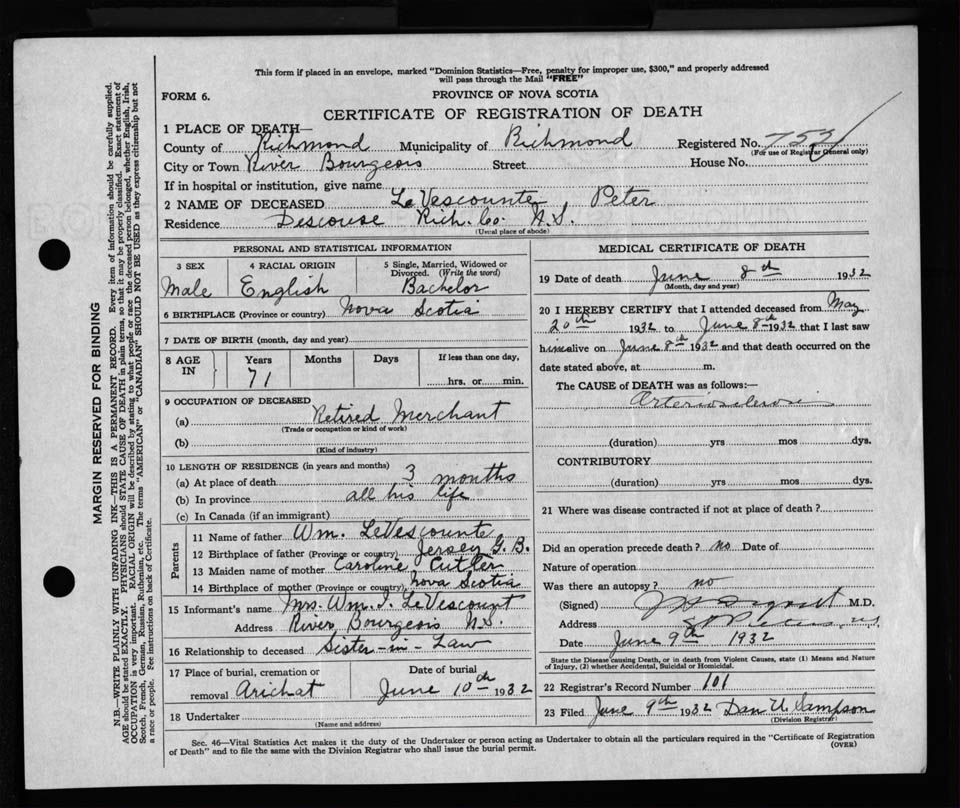 This form if placed in an envelope, marked "Dominion Statistics—Free, penalty for improper use, $300," and properly addressed
will pass through the Mail "FREE"
FORM 6.
PROVINCE OF NOVA SCOTIA
CERTIFICATE OF REGISTRATION OF DEATH
1 PLACE OF DEATH—
County of Richmond Municipality of Richmond Registered No.
(For use of Registrar General only)
City or Town River Bourgeois Street House No.
If in hospital or institution, give name
2 NAME OF DECEASED LeVescounte, Peter
Residence Descouse Rich. Co. N.S.
(Usual place of abode)
PERSONAL AND STATISTICAL INFORMATION
3 SEX 4 RACIAL ORIGIN 5 Single, Married, Widowed or
Divorced. (Write the word)
Male English Bachelor
6 BIRTHPLACE (Province or country) Nova Scotia
7 DATE OF BIRTH (month, day and year)
8 AGE IN Years Months Days If less than one day,
71 hrs. or min.
9 OCCUPATION OF DECEASED
(a) Retired Merchant
(Trade or occupation or kind of work)
(b)
(Kind of industry)
10 LENGTH OF RESIDENCE (in years and months)
(a) At place of death 3 months
(b) In province all his life
(c) In Canada (if an immigrant)
Parents
11 Name of father Wm. LeVescounte
12 Birthplace of father (Province or country) Jersey G.B.
13 Maiden name of mother Caroline Cutler
14 Birthplace of mother (Province or country) Nova Scotia
15 Informant's name Mrs. Wm. J. LeVescount
Address River Bourgeois N.S.
16 Relationship to deceased Sister-in-Law
17 Place of burial, cremation or Date of burial
removal Arichat June 10th 1932
18 Undertaker
(Name and address)
MEDICAL CERTIFICATE OF DEATH
19 Date of death June 8th 1932
(Month, day and year)
20 I HEREBY CERTIFY that I attended deceased from May
20th 1932 to June 8th 1932 that I last saw
him alive on June 8th 1932 and that death occurred on the
date stated above, at m.
The CAUSE of DEATH was as follows:—
Arteriosclerosis
(duration) yrs mos dys.
CONTRIBUTORY
(duration) yrs mos dys.
21 Where was disease contracted if not at place of death?
Did an operation precede death? no Date of
Nature of operation
Was there an autopsy? no
(Signed) M.D.
Address St Peters N.S.
Date June 9th 1932
State the Disease causing Death, or in death from Violent Causes, state (1) Means and Nature
of Injury, (2) whether Accidental, Suicidal or Homicidal.
22 Registrar's Record Number 101
23 Filed June 9th 1932 Dan U. Sampson
(Division Registrar)
Sec. 46—Vital Statistics Act makes it the duty of the Undertaker or person acting as Undertaker to obtain all the particulars required in the "Certificate of Registration
of Death" and to file the same with the Division Registrar who shall issue the burial permit.
(OVER)
MARGIN RESERVED FOR BINDING
N.B.—WRITE PLAINLY WITH UNFADING INK—THIS IS A PERMANENT RECORD. Every item of information should be carefully supplied.
AGE should be stated EXACTLY. PHYSICIANS should STATE CAUSE OF DEATH in plain terms, so that it may be properly classified. Exact statement of
OCCUPATION is very important. RACIAL ORIGIN will be described by stating to what people or race the deceased person belonged, whether English, Irish,
Scotch, French, German, Russian, Ruthenian, etc. The terms "AMERICAN" or "CANADIAN" SHOULD NOT BE USED as they express citizenship but not
a race or people. See instructions on back of Certificate.